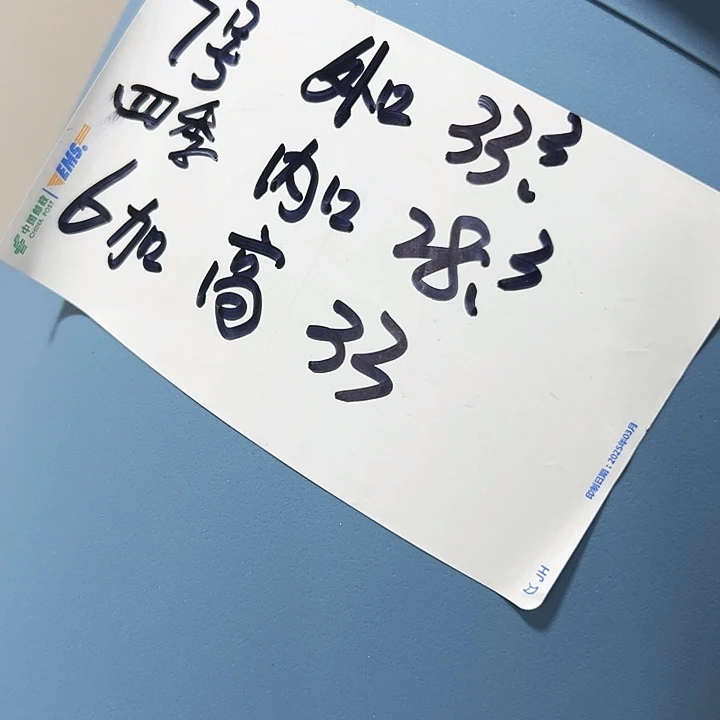 7号 外口 33.3
四季 内口 28.3
6加 高 33
中国邮政
CHINA POST
EMS
印制日期：2025年03月
JH